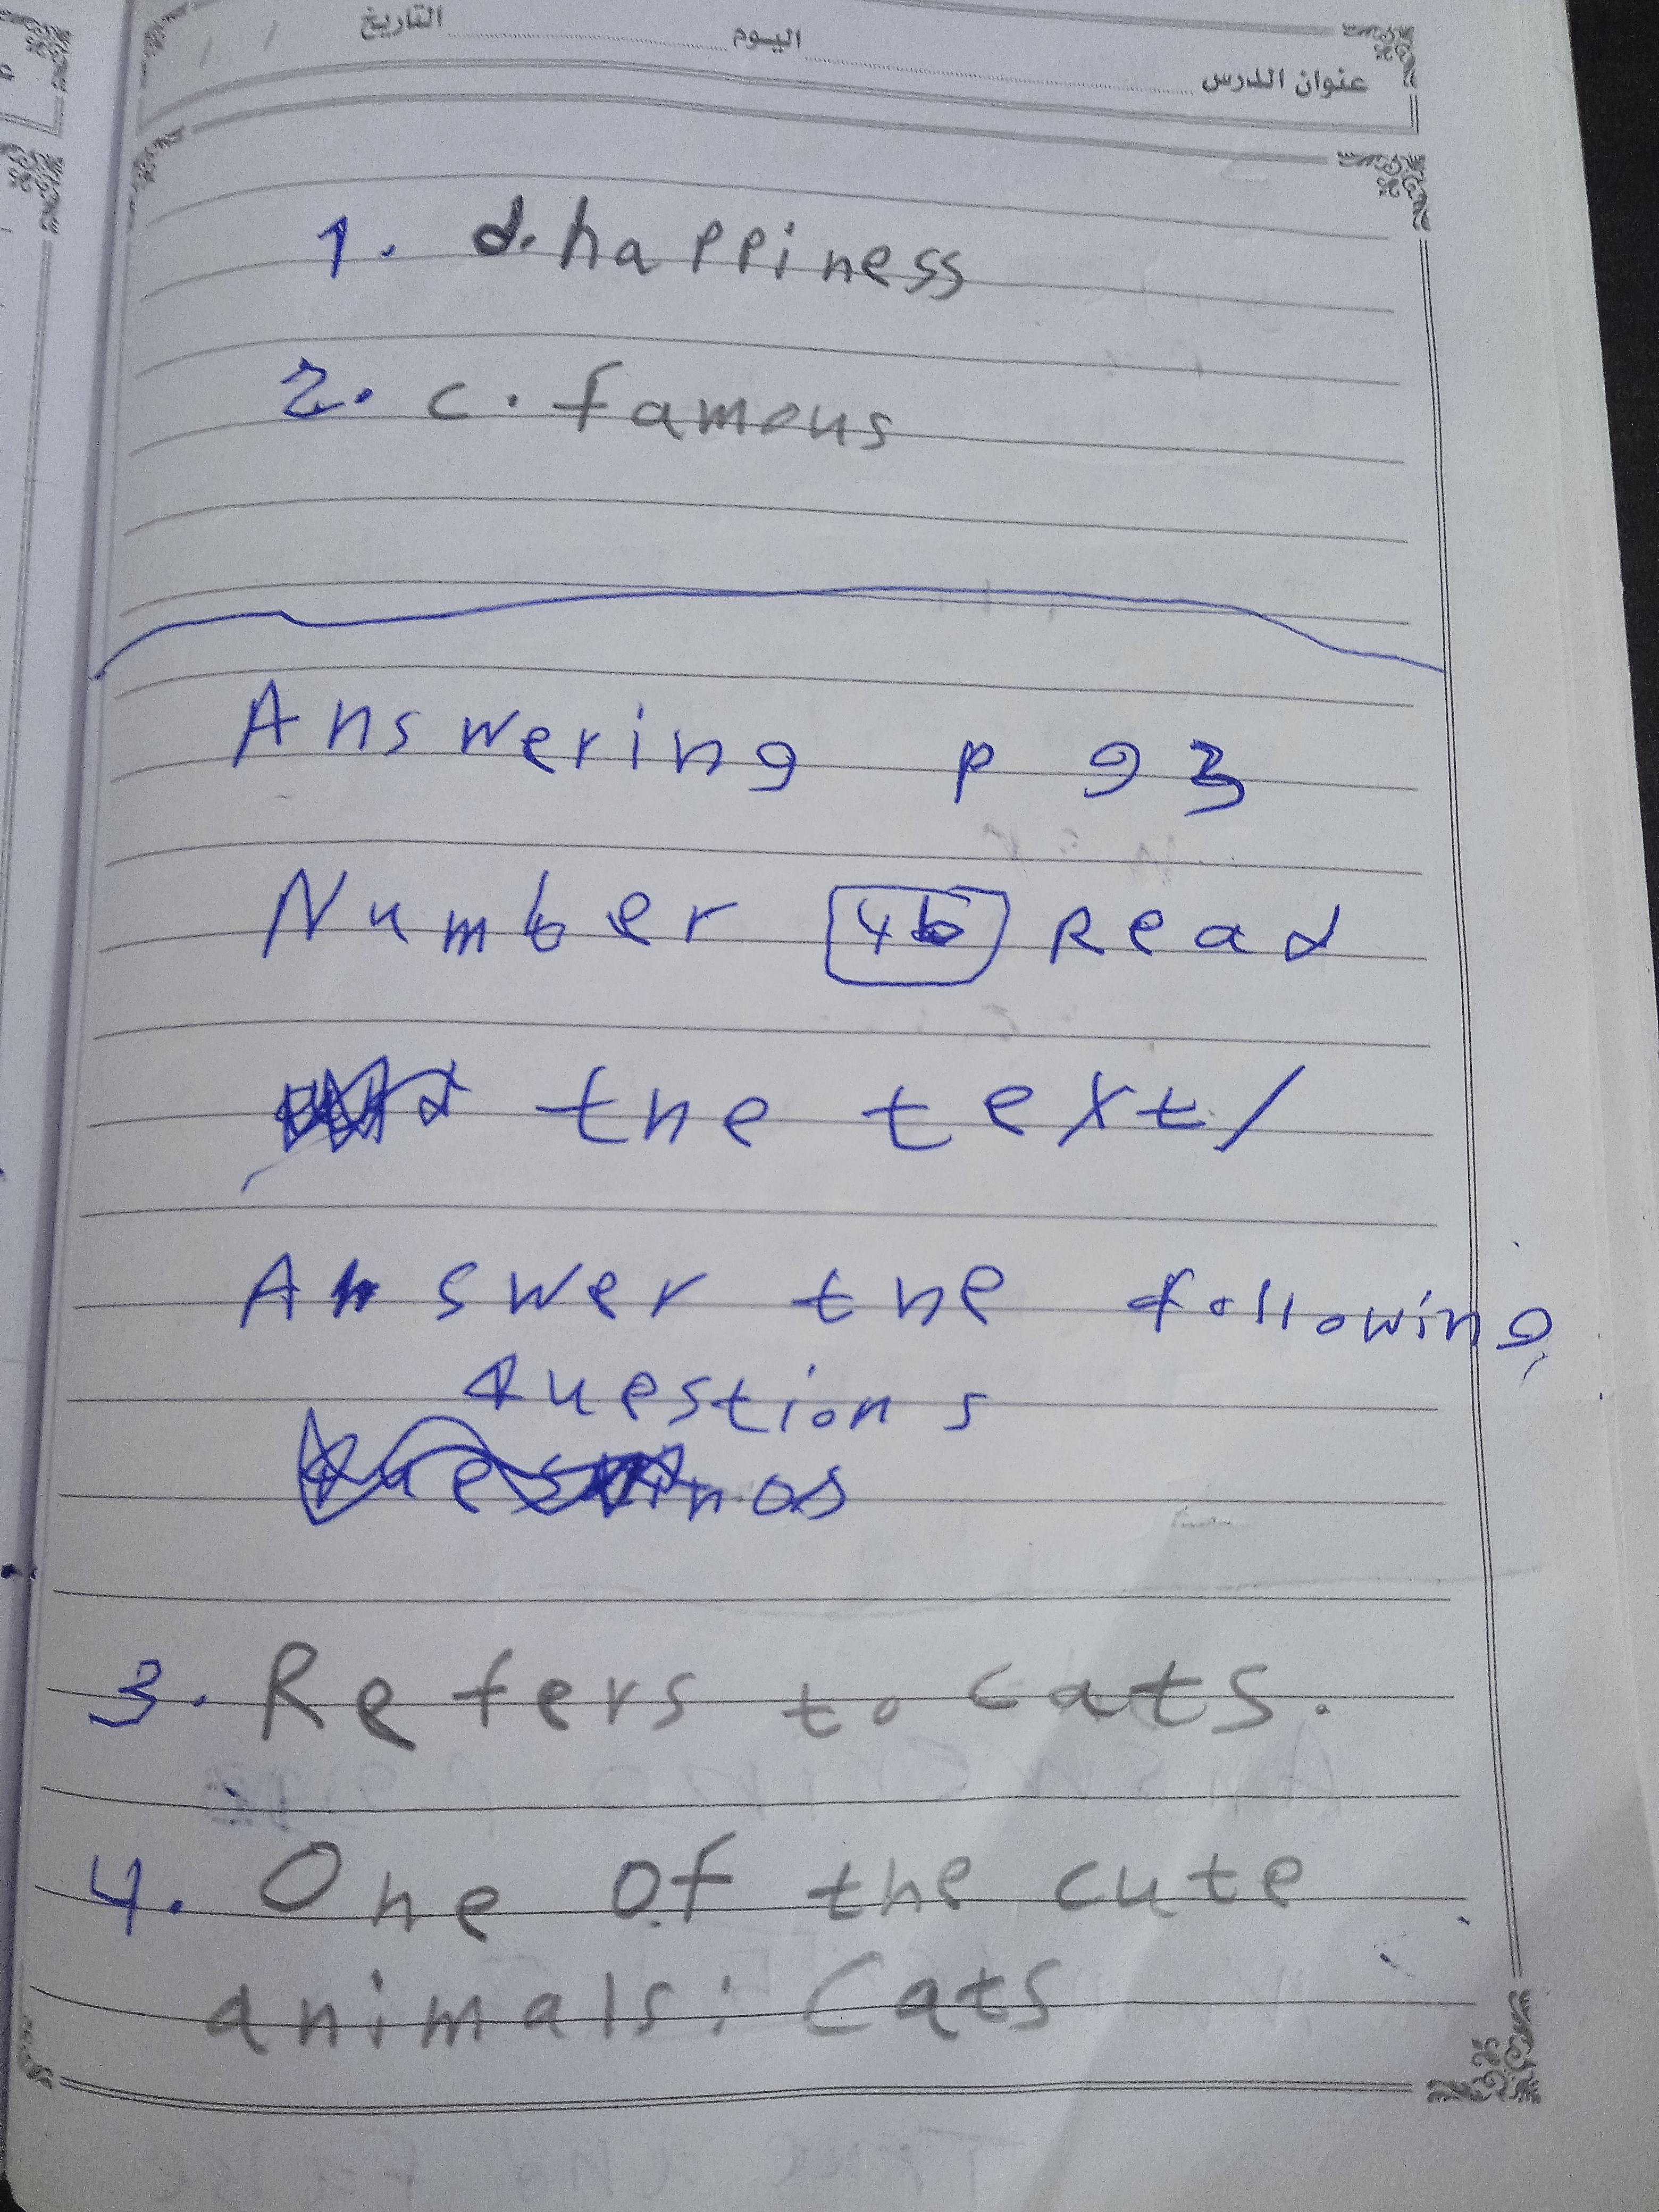 التاريخ اليوم
عنوان الدرس
1. d. happiness
2. c. famous
Answering p 93
Number 4b Read
the text/
Answer the following
Questions
3. Refers to cats.
4. One of the cute
animals: Cats